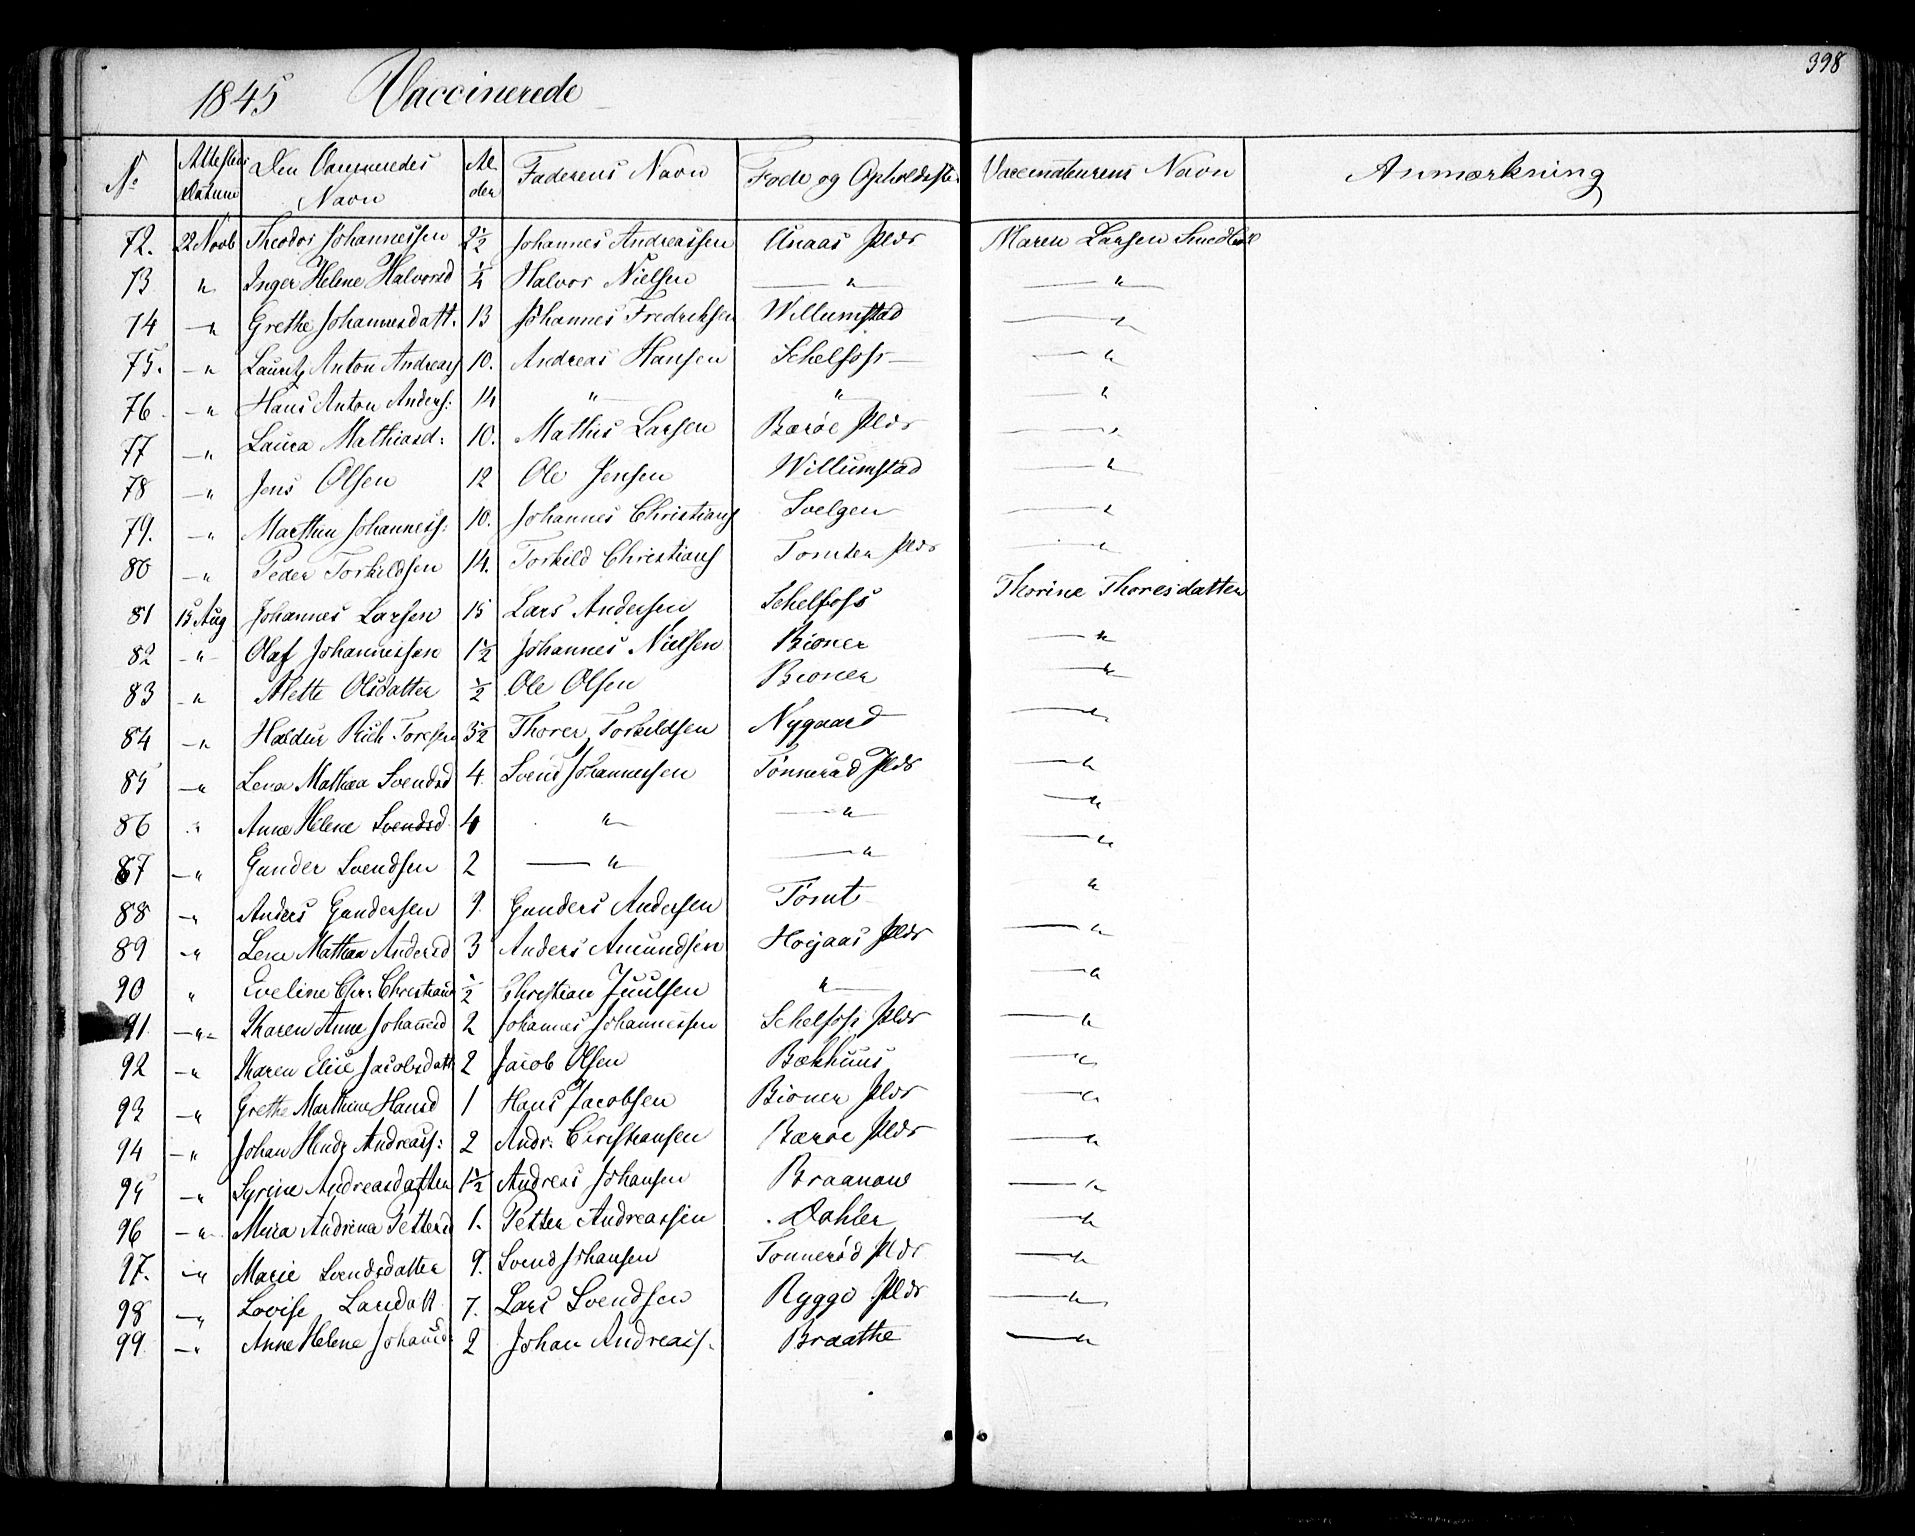 398
1845 Vaccinerede
No Attestens Datum Den Navn Alder Faderens Navn Føde og Opholdsste. Navn Anmærkning
72. 22 Novb Theodor Johannessen 2½ Johannes Andreassen Unaas Plds Maren Larsen
73 " Inger Helene Halvorsd ¼ Halvor Nielsen — " — — " —
74 — " Grethe Johannesdatt. 13 Johannes Fredriksen Willumstad — " —
75. — " Lauritz Anton Andreas 10. Andreas Hansen Schelfoss — " —
76. — " Hans Anton Anders: 14 " " — " —
77 — " Laura Mathiasd: 10. Mathis Larsen Bærøe Plds — " —
78 — " Jens Olsen 12 Ole Jensen Willumstad — " —
79. — " Marthin Johanness: 10. Johannes Christians Svelgen — " —
80 — " Peder Torkildsen 14. Torkild Christians Tomter Plds — " —
81 15 Aug Johannes Larsen 15 Lars Andersen Schelfoss Thorine Thoresdatter
82 — " — Olaf Johannissen 1½ Johannes Nielsen Bioner — " —
83 — " Alette Olsdatter ½ Ole Olsen Bioner — " —
84 — " Haldur Rich Toresen 3½ Thorer Torkildsen Nygaard — " —
85 — " Lena Mathea Svendsd 4 Svend Johannesen Tønnerød Plds — " —
86 " Anne Helene Svendsd 4 " — " — — " —
87 — " Gunder Svendsen 2 — " — " — " —
88 — " Anders Gundersen 9. Gunders Andersen Tomt "
89 — " Lene Mathea Andersd 3 Anders Amundsen Høgaas Plds — " —
90 " Eveline Chr: Christians ½ Christian Juulsen " — — "
91 — " — Karen Anne Johannesd 2 Johannes Johannessen Schelfoss Plds — " —
92 — " Karen Elise Jacobsdatt 2 Jacob Olsen Bækhuus — " —
93 — " Grethe Marthine Hansd 1 Hans Jacobsen Bioner Plds — " —
94 — " Johan Hindr Andreass: 2 Andr: Christiansen Bærøe Plds — " —
95 — " Syrine Andreasdatter 1½ Andreas Johansen Braanaas — " —
96 — " Andrina Petters 1. Petter Andreassen Dahler — " —
97. — " Marie Svendsdatter 9. Svend Johansen Tonnerød Plds — " —
98 — " Lovise Larsdatt 7. Lars Svendsen Rygge Plds — " —
99 — " Anne Helene Johansd 2 Johan Andreass. Braathe — " —